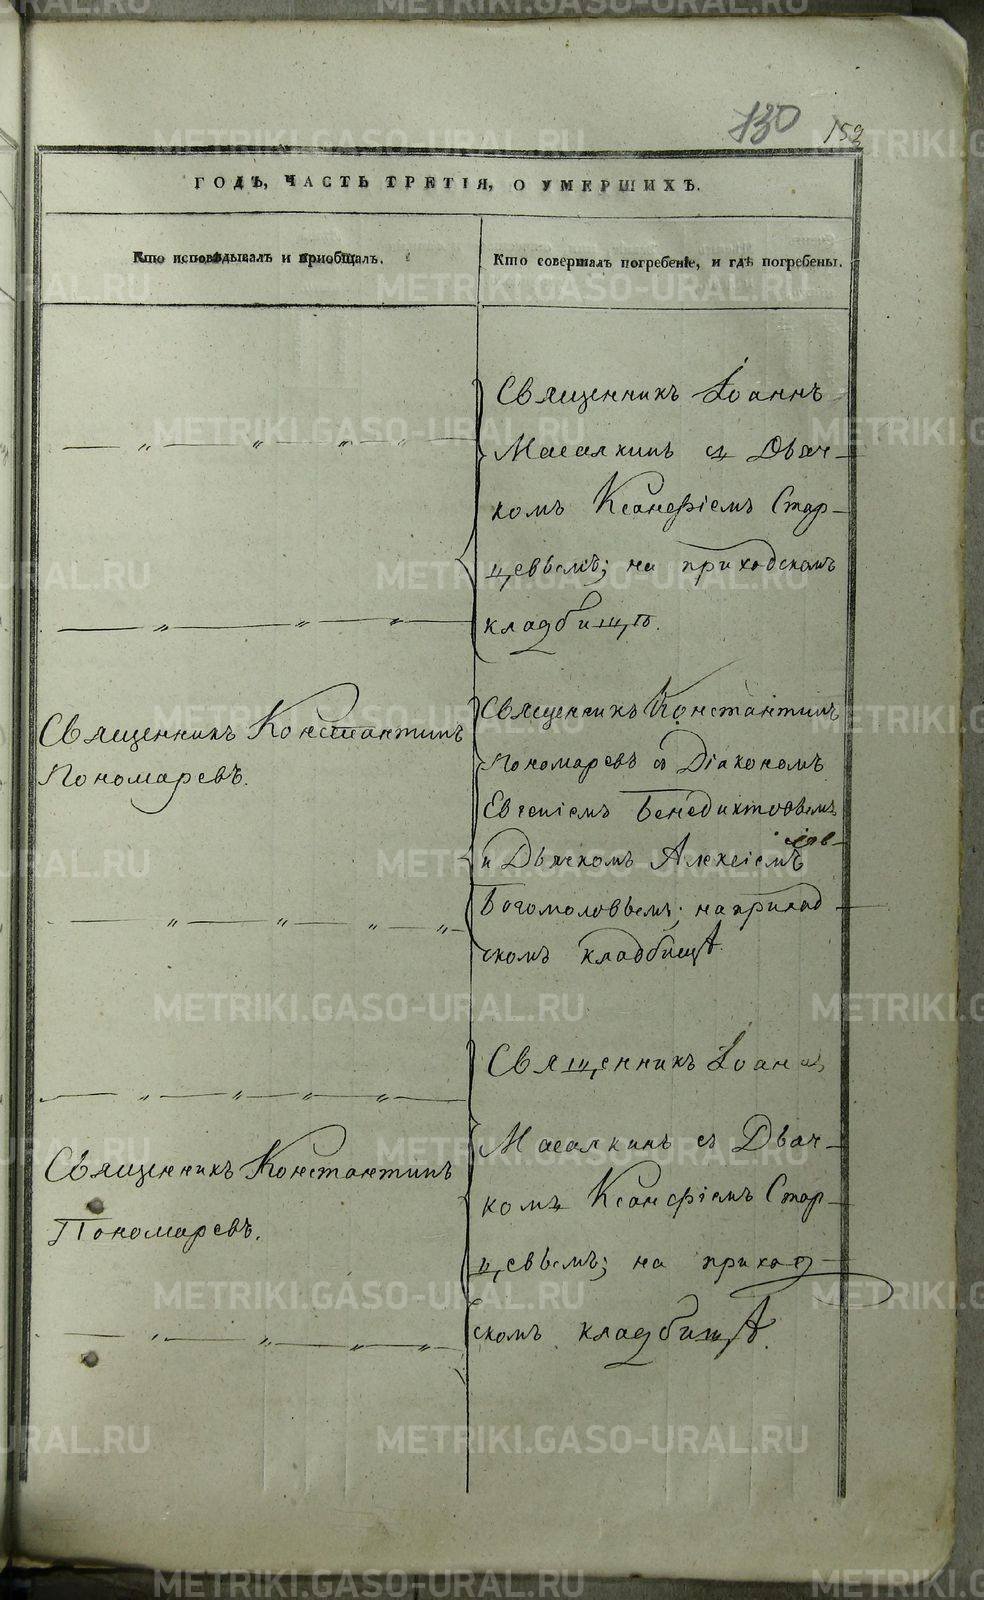 130 152
ГОДЪ, ЧАСТЬ ТРЕТІЯ, О УМЕРШИХЪ.
Кто исповѣдывалъ и пріобщалъ.
Кто совершалъ погребеніе, и гдѣ погребены.
Священникъ Іоаннъ
Масалкинъ съ Дьяч-
комъ Ксанфіемъ Стар-
цевымъ; на приходскомъ
кладбищѣ.
Священникъ Константинъ
Пономаревъ.
Священникъ Константинъ
Пономаревъ съ Діакономъ
Евгеніемъ Бенедиктовымъ
и Дьячкомъ Алексіемъ
Богомоловымъ; на приход
скомъ кладбищѣ.
Священникъ Іоаннъ
Масалкинъ съ Дьяч-
комъ Ксанфіемъ Стар-
цевымъ; на приход
скомъ кладбищѣ.
Священникъ Константинъ
Пономаревъ.
METRIKI.GASO-URAL.RU